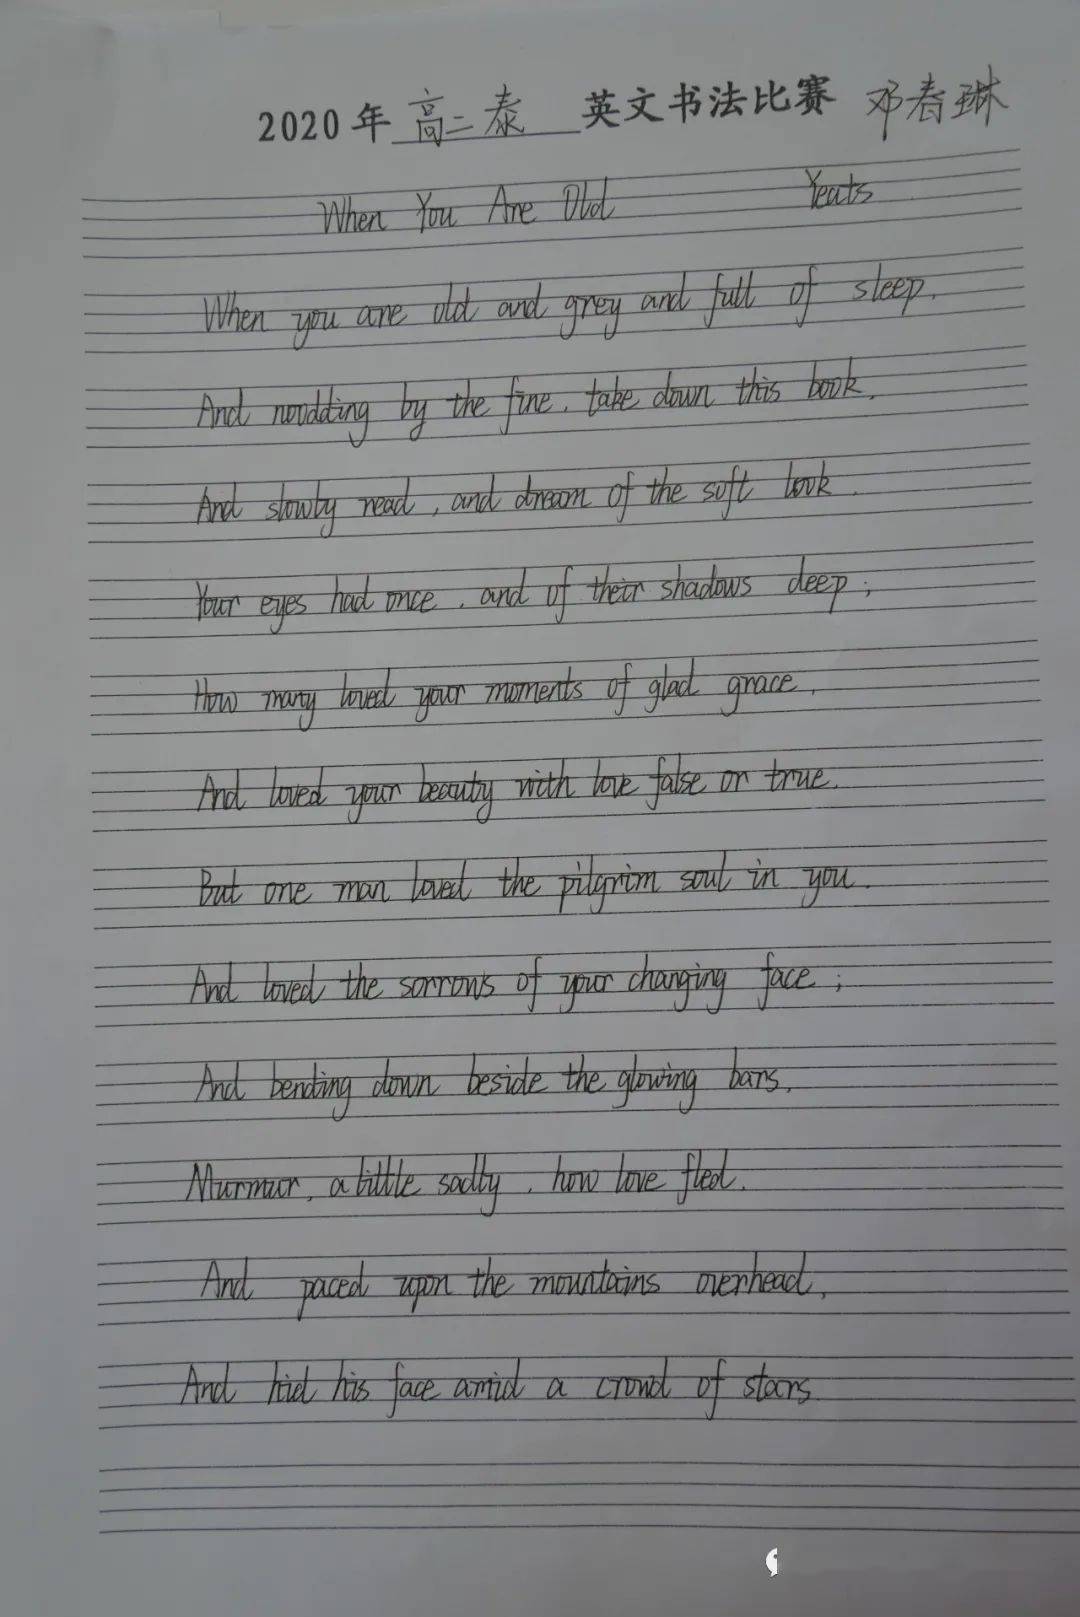 2020年高二泰英文书法比赛 邓春琳
When You Are Old Yeats
When you are old and grey and full of sleep,
And noodding by the fire, take down this book,
And slowly read, and dream of the soft look
Your eyes had once, and of their shadows deep;
How many loved your moments of glad grace,
And loved your beauty with love false or true.
But one man loved the pilgrim soul in you.
And loved the sorrows of your changing face;
And bending down beside the glowing bars,
Murmur, a little sadly, how love fled.
And paced upon the mountains overhead,
And hid his face amid a crowd of stars